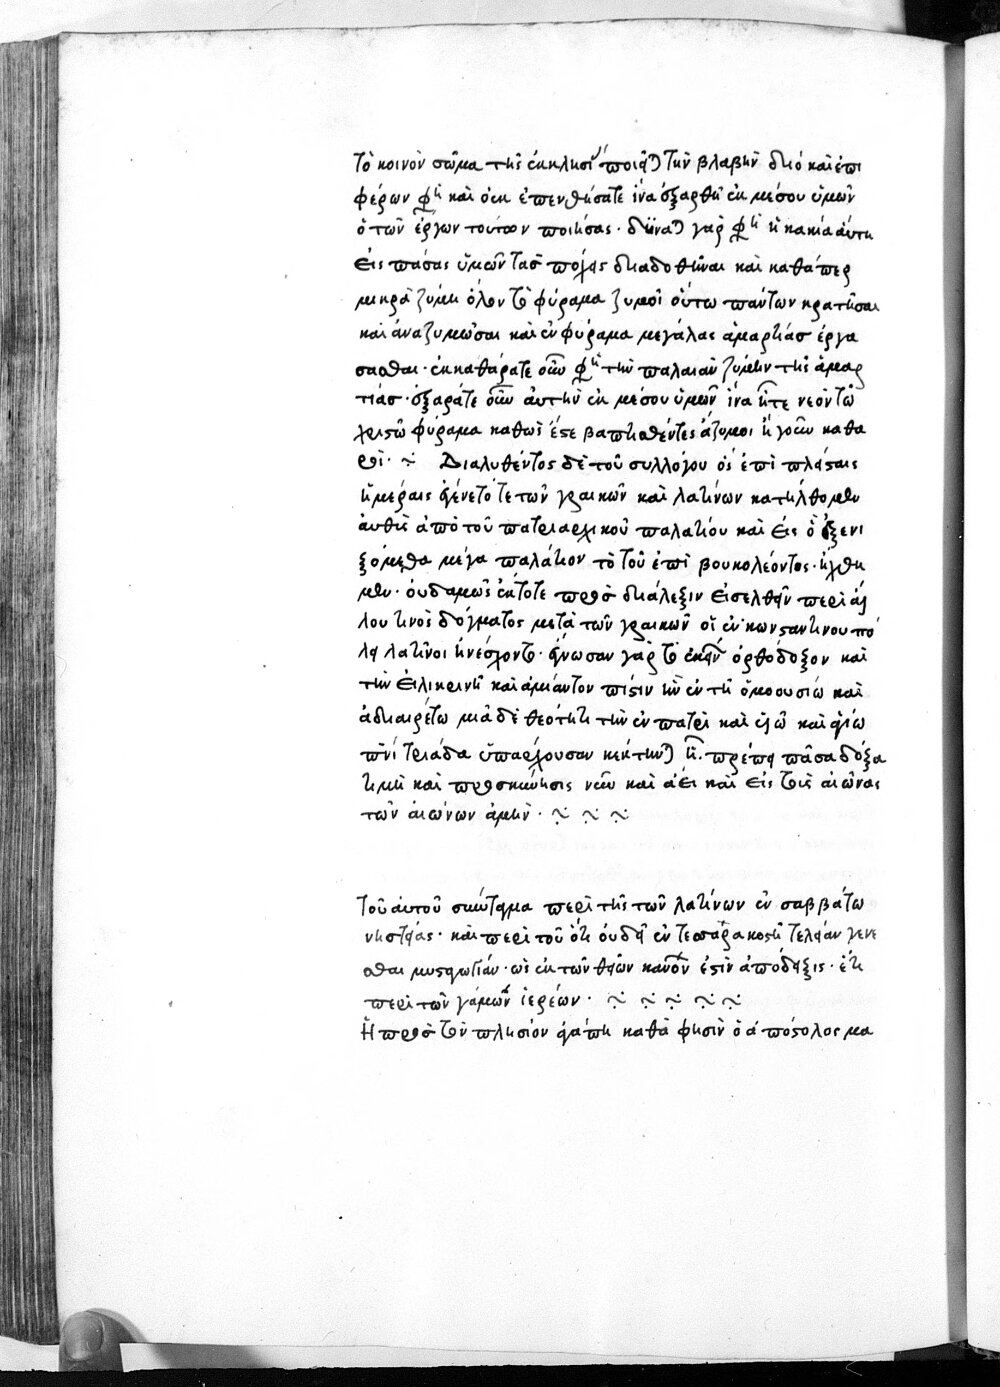 τὸ κοινὸν σῶμα τῆς ἐκκλησί ποιεῖται τὴν βλαβὴν διό καὶ ἐπι
φέρων φησὶ καὶ οὐκ ἐπενθήσατε ἵνα ἐξαρθῇ ἐκ μέσου ὑμῶν
ὁ τῶν ἔργων τοῦτον ποιήσας· δύναται γὰρ φησὶ ἡ κακία αὕτη
εἰς πάσας ὑμῶν τὰς διαδοθῆναι καὶ καθάπερ
μικρὰ ζύμη ὅλον τὸ φύραμα ζυμοῖ οὕτω πάντων κρατῆσαι
καὶ ἀναζυμῶσαι καὶ ἓν φύραμα μεγάλας ἁμαρτίας ἐργά
σασθαι· ἐκκαθάρατε οὖν φησὶ τὴν παλαιὰν ζύμην τῆς ἁμαρ
τίας· ἐξαράτε οὖν αὐτὴν ἐκ μέσου ὑμῶν ἵνα ἦτε νέον τῷ
χριστῷ φύραμα καθώς ἐστε βαπτισθέντες ἄζυμοι ἤγουν καθα
ροί· ~ Διαλυθέντος δὲ τοῦ συλλόγου ὃς ἐπὶ πλείσταις
ἡμέραις ἐγένετό τε τῶν γραικῶν καὶ λατίνων κατήλθομεν
αὖθις ἀπὸ τοῦ πατριαρχικοῦ παλατίου καὶ εἰς ὃ ἐξενι
ζόμεθα μέγα παλάτιον τὸ τοῦ ἐπὶ βουκολέοντος· ἤλθο
μεν· οὐδαμῶς ἔκτοτε πρὸς διάλεξιν εἰσελθεῖν περὶ ἄλ
λου τινὸς δόγματος μετὰ τῶν γραικῶν οἱ ἐν κωνσταντινουπό
λει λατῖνοι ἠνέσχοντο· ἔγνωσαν γὰρ τὸ ἐκείνων ὀρθόδοξον καὶ
τὴν εἰλικρινῆ καὶ ἀμίαντον πίστιν ἣν ἐν τῇ ὁμοουσίῳ καὶ
ἀδιαιρέτῳ μιᾷ δὲ θεότητι τὴν ἐν πατρὶ καὶ υἱῷ καὶ ἁγίῳ
πνι τριάδα ὑπάρχουσαν κέκτηνται ᾗ πρέπει πᾶσα δόξα
τιμὴ καὶ προσκύνησις νῦν καὶ ἀεὶ καὶ εἰς τοὺς αἰῶνας
τῶν αἰώνων ἀμήν· ~ ~ ~
Τοῦ αὐτοῦ σύνταγμα περὶ τῆς τῶν λατίνων ἐν σαββάτῳ
νηστείας· καὶ περὶ τοῦ ὅτι οὐ δεῖ ἐν τεσσαρακοστῇ τελείαν γενέ
σθαι μυσταγωγίαν· ὡς ἐκ τῶν θείων κανόνων ἐστὶν ἀπόδειξις· ἔτι
περὶ τῶν γάμων ἱερέων· ~ ~ ~ ~ ~
Ἡ πρὸς τὸν πλησίον ἀγάπη καθὰ φησὶν ὁ ἀπόστολος μα